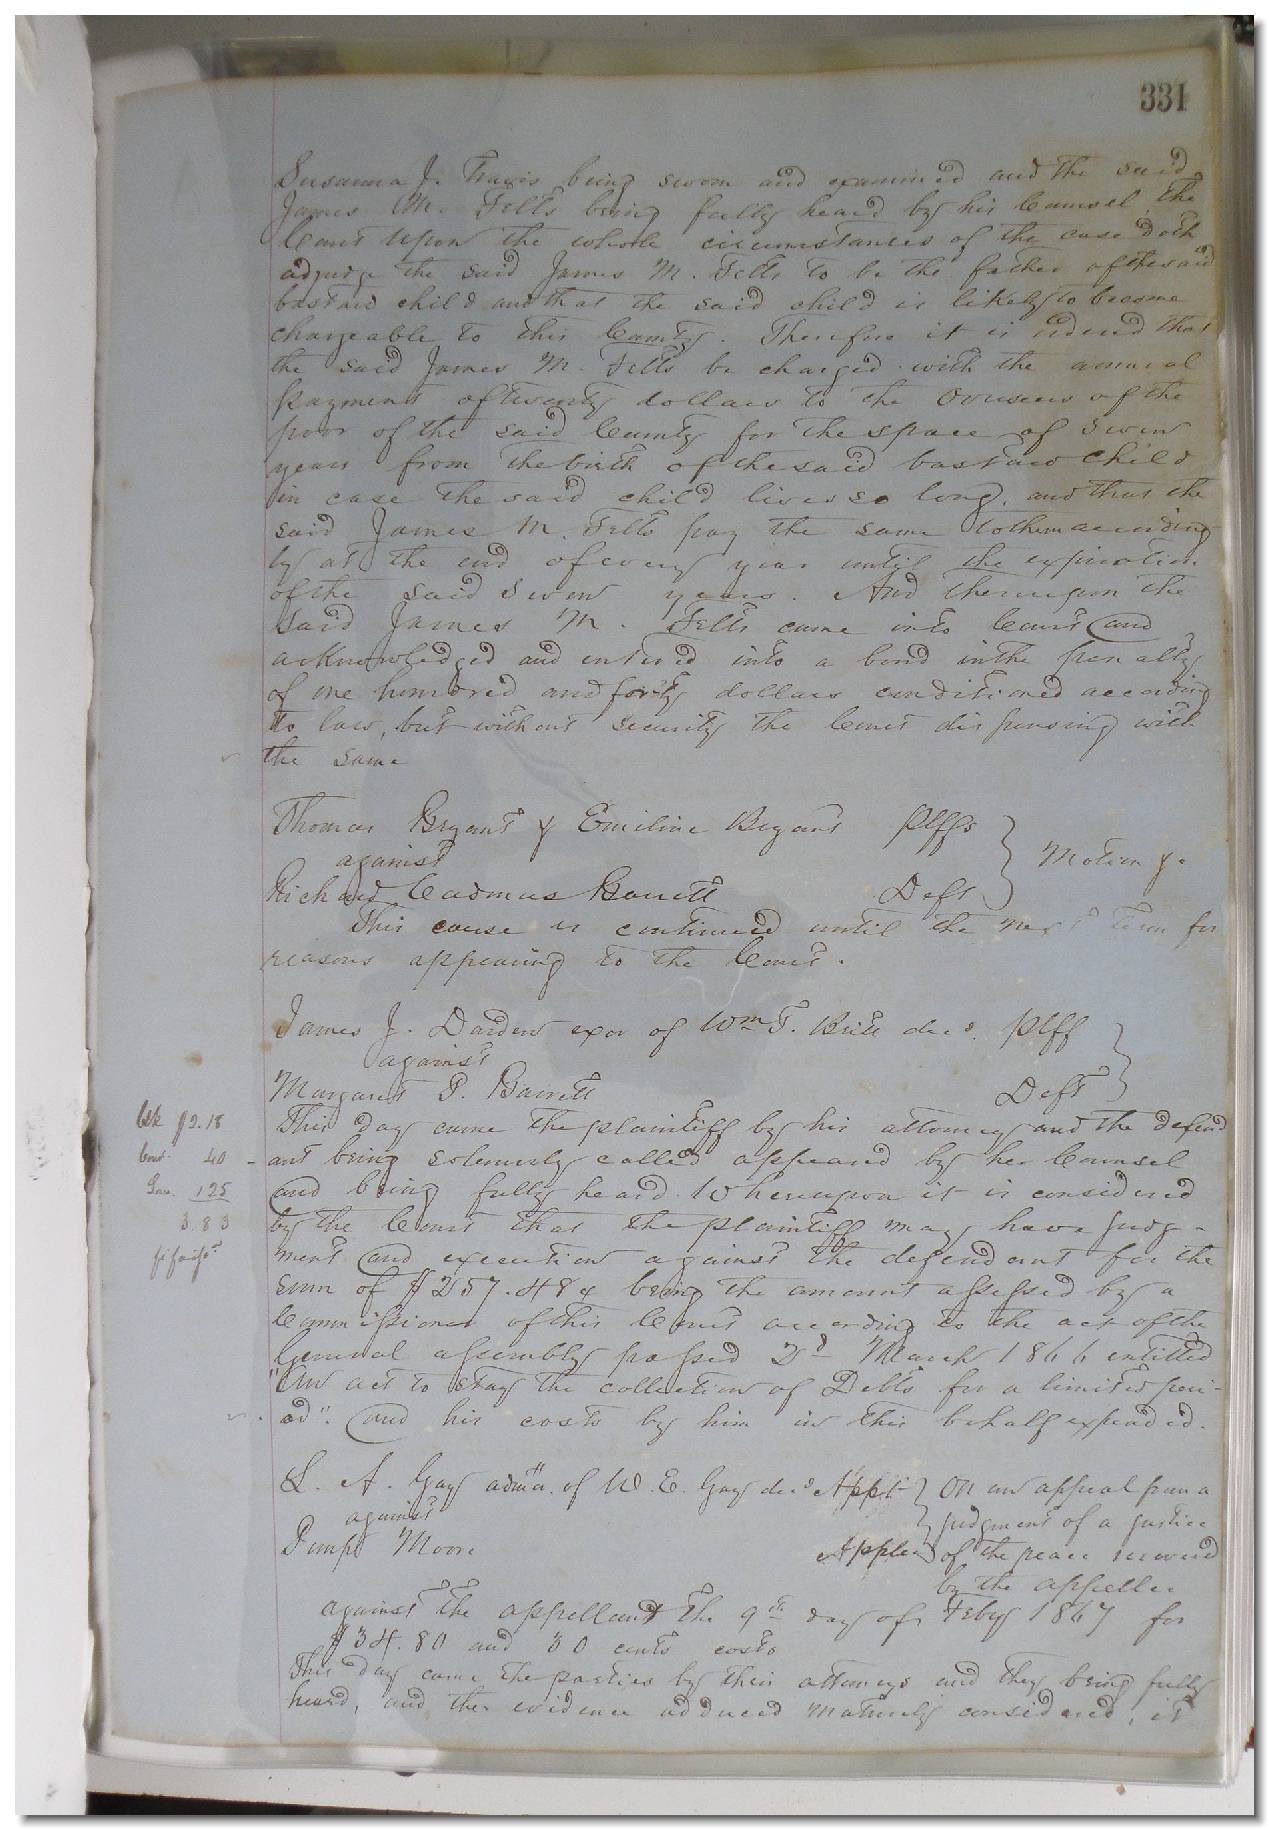 331
Susanna J. Travis being sworn and examined and the said
James M. Felts being fully heard by his Counsel, the
Court upon the whole circumstances of the case doth
adjudge the said James M. Felts to be the father of the said
bastard child and that the said child is likely to become
chargeable to this County. Therefore it is ordered that
the said James M. Felts be charged with the annual
payment of twenty dollars to the Overseers of the
poor of the said County for the space of seven
years from the birth of the said bastard child
in case the said child lives so long, and that the
said James M. Felts pay the same to them according
ly at the end of every year until the expiration
of the said seven years. And thereupon the
said James M. Felts came into Court and
acknowledged and entered into a bond in the penalty
of one hundred and forty dollars conditioned according
to law, but without security the Court dispensing with
the same
Thomas Bryant & Emiline Bryant Plffs
against Motion &c
Richard Cadmus Barrett Deft
This cause is continued until the next term for
reasons appearing to the Court.
James J. Darden exor of Wm T. Britt decd. Plff
against
Margaret P. Barrett Deft
Clk $2.18
This day came the plaintiff by his attorney and the defend
40
ant being solemnly called appeared by her Counsel
125
and being fully heard. Whereupon it is considered
3.83
by the Court that the plaintiff may have judg-
ment and execution against the defendant for the
sum of $257.48 being the amount assessed by a
Commissioner of this Court according to the act of the
General assembly passed 2d March 1866 entitled
"An act to stay the collection of Debts for a limited peri-
od". and his costs by him in this behalf expended.
L. A. Gay admr. of W. E. Gay decd Applt On an appeal from a
against judgment of a justice
Moore Applee of the peace recovered
by the appellee
against the appellant the 9th day of Feby 1867 for
$34.80 and 30 cents costs
This day came the parties by their attorneys and they being fully
heard, and the evidence adduced maturely considered, it